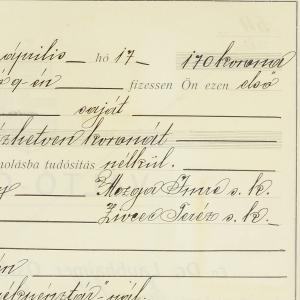 április hó 17 170 korona
9-én fizessen Ön ezen első
saját
zhetven koronát
nolásba tudósítás nélkül.
y Mozga Imre s. k.
Zivcec Teréz s. k.
én
nál.